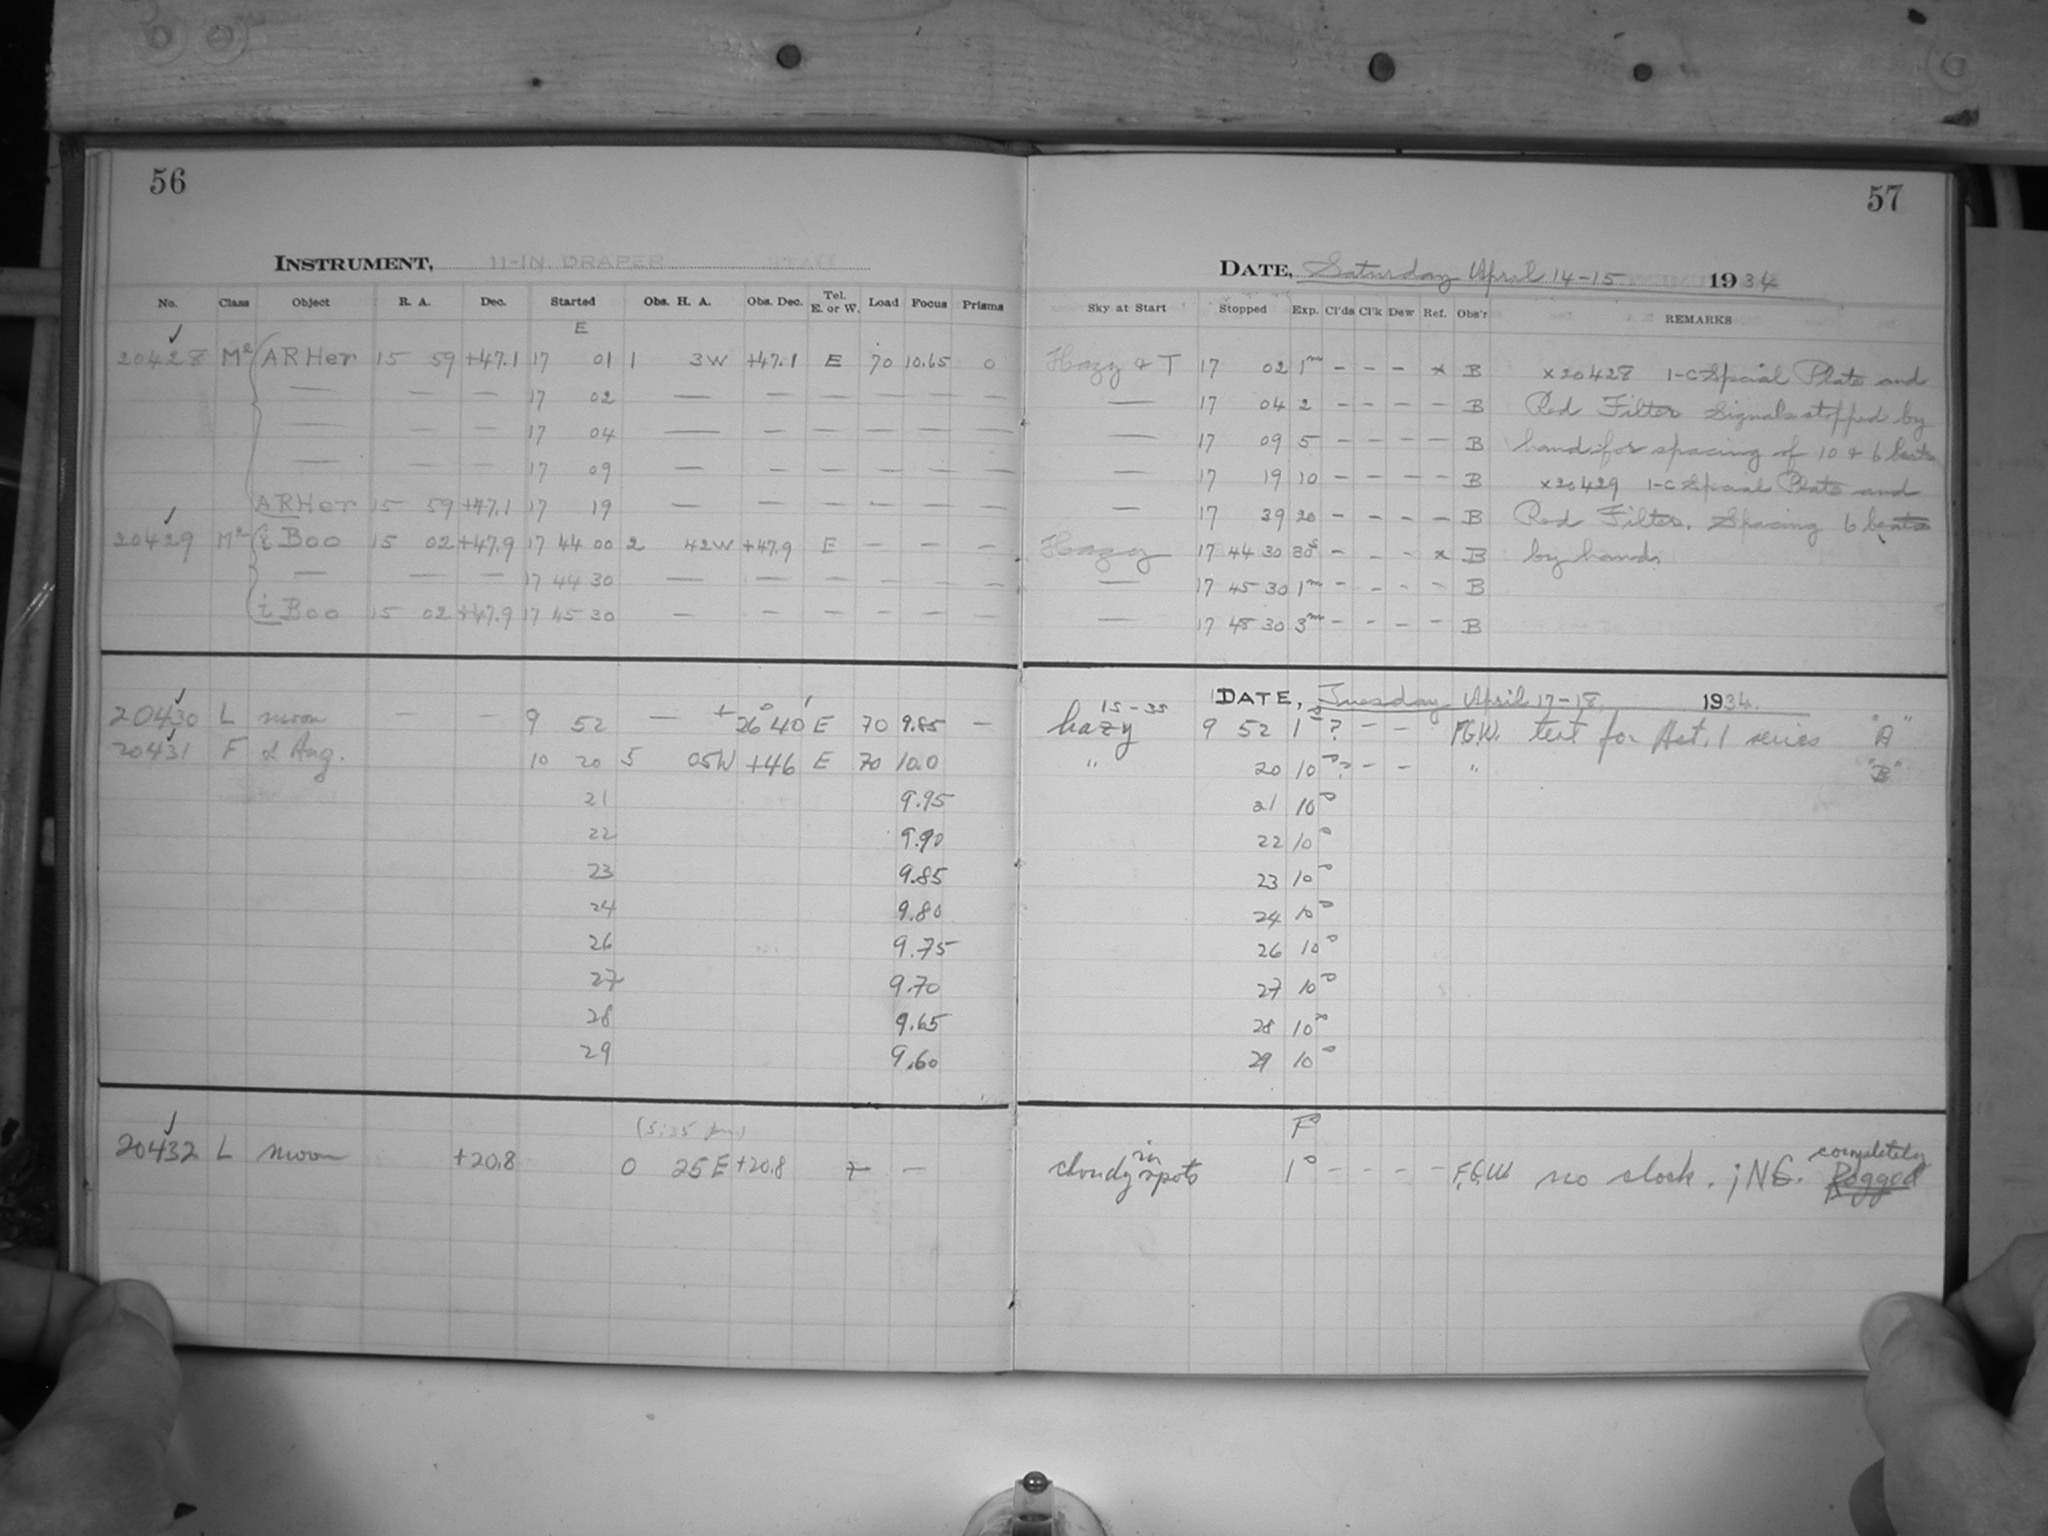 56
INSTRUMENT, 11-IN. DRAPER
No. Class Object R. A. Dec. Started Obs. H. A. Obs. Dec. Tel. E. or W. Load Focus Prisms
E
20428 M² ARHer 15 59 +47.1 17 01 1 3W +47.1 E 70 10.65 0
— — — 17 02 — — — — — —
— — — 17 04 — — — — — —
— — — 17 09 — — — — — —
ARHer 15 59 +47.1 17 19 — — — — — —
20429 M² i Boo 15 02 +47.9 17 44 00 2 42W +47.9 E — — —
— — — 17 44 30 — — — — — —
i Boo 15 02 +47.9 17 45 30 — — — — — —
20430 L moon — — 9 52 — +26° 40' E 70 9.85 —
20431 F α Aug. 10 20 5 05W +46 E 70 10.0
21 9.95
22 9.90
23 9.85
24 9.80
26 9.75
27 9.70
28 9.65
29 9.60
(5:35 pm)
20432 L moon +20.8 0 25E +20.8 — —
57
DATE, Saturday April 14-15 1934
Sky at Start Stopped Exp. Cl'ds Cl'k Dew Ref. Obs'r REMARKS
Hazy & T 17 02 1m - - - x B x20428 1-C Special Plate and
— 17 04 2 - - - - B Red Filter Signals stopped by
— 17 09 5 - - - - B hand for spacing of 10 & 6 beats
— 17 19 10 - - - - B x20429 1-C Special Plate and
— 17 39 20 - - - - B Red Filter. Spacing 6 beats
Hazy 17 44 30 30s - - - x B by hand.
— 17 45 30 1m - - - - B
— 17 48 30 3m - - - - B
DATE, Tuesday April 17-18, 1934.
15-35
hazy 9 52 1s ? - - F.G.W. test for Ast. 1 series "A"
" 20 10s ? - - " "B"
21 10s
22 10s
23 10s
24 10s
26 10s
27 10s
28 10s
29 10s
cloudy in spots 1s - - - - F.G.W. no clock. ; NG. completely fogged